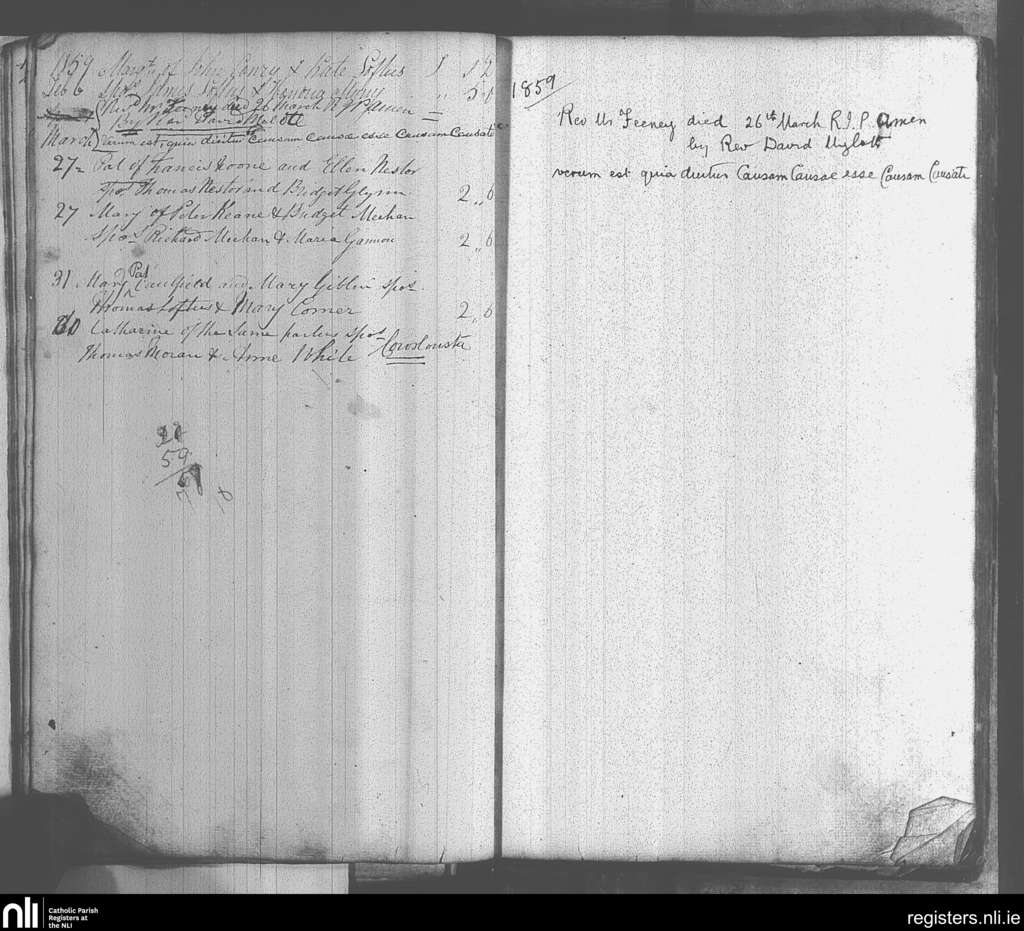 1859 Margt. of John Conry & Kate Loftus 1 12
Feb 6 Spos. James Loftus & Honoria 5-0
Revd. Mr. Feeney died 26 March R.I.P. Amen
By Rev. David
March verum est, quia dicitur Causam Causae esse Causam Causate
27 Pat of Francis Noone and Ellen Nestor
Spos Thomas Nestor and Bridget Glynn 2,,6
27 Mary of Peter Keane & Bridget Meehan
Spos. Richard Meehan & Maria Gannon 2,,6
31 Mary Pat Caulfield and Mary Giblin Spos.
Thomas Loftus & Mary Comer 2,,6
Catharine of the Same parties Spos.
Thomas Moran & Anne White
59
1859
Rev Mr Feeney died 26th March R.I.P. Amen
by Rev David Mylott
verum est quia dicitur Causam Causae esse Causam Causate
nli
Catholic Parish
Registers at
the NLI
registers.nli.ie